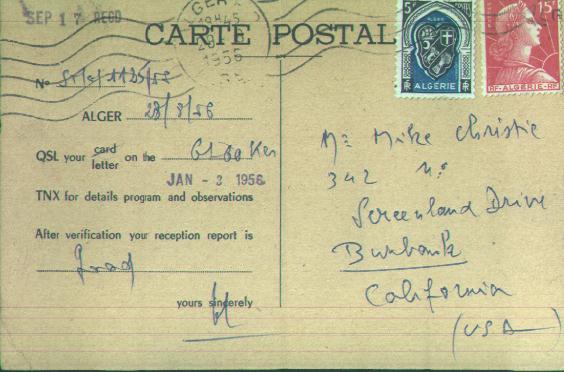 SEP 17 RECD
ALGER
18H45
1956
CARTE POSTALE
5F
ALGÉRIE
15F
RF-ALGERIE-RF
N°
ALGER 28/8/56
QSL your card letter on the 6160 Kcs
JAN - 3 1956
TNX for details program and observations
After verification your reception report is
Good
yours sincerely
Mr Mike Christie
342 N.
Screenland Drive
Burbank
California
(USA)